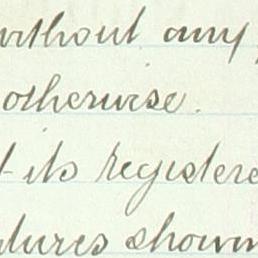 without any
otherwise.
its registere
tures shown